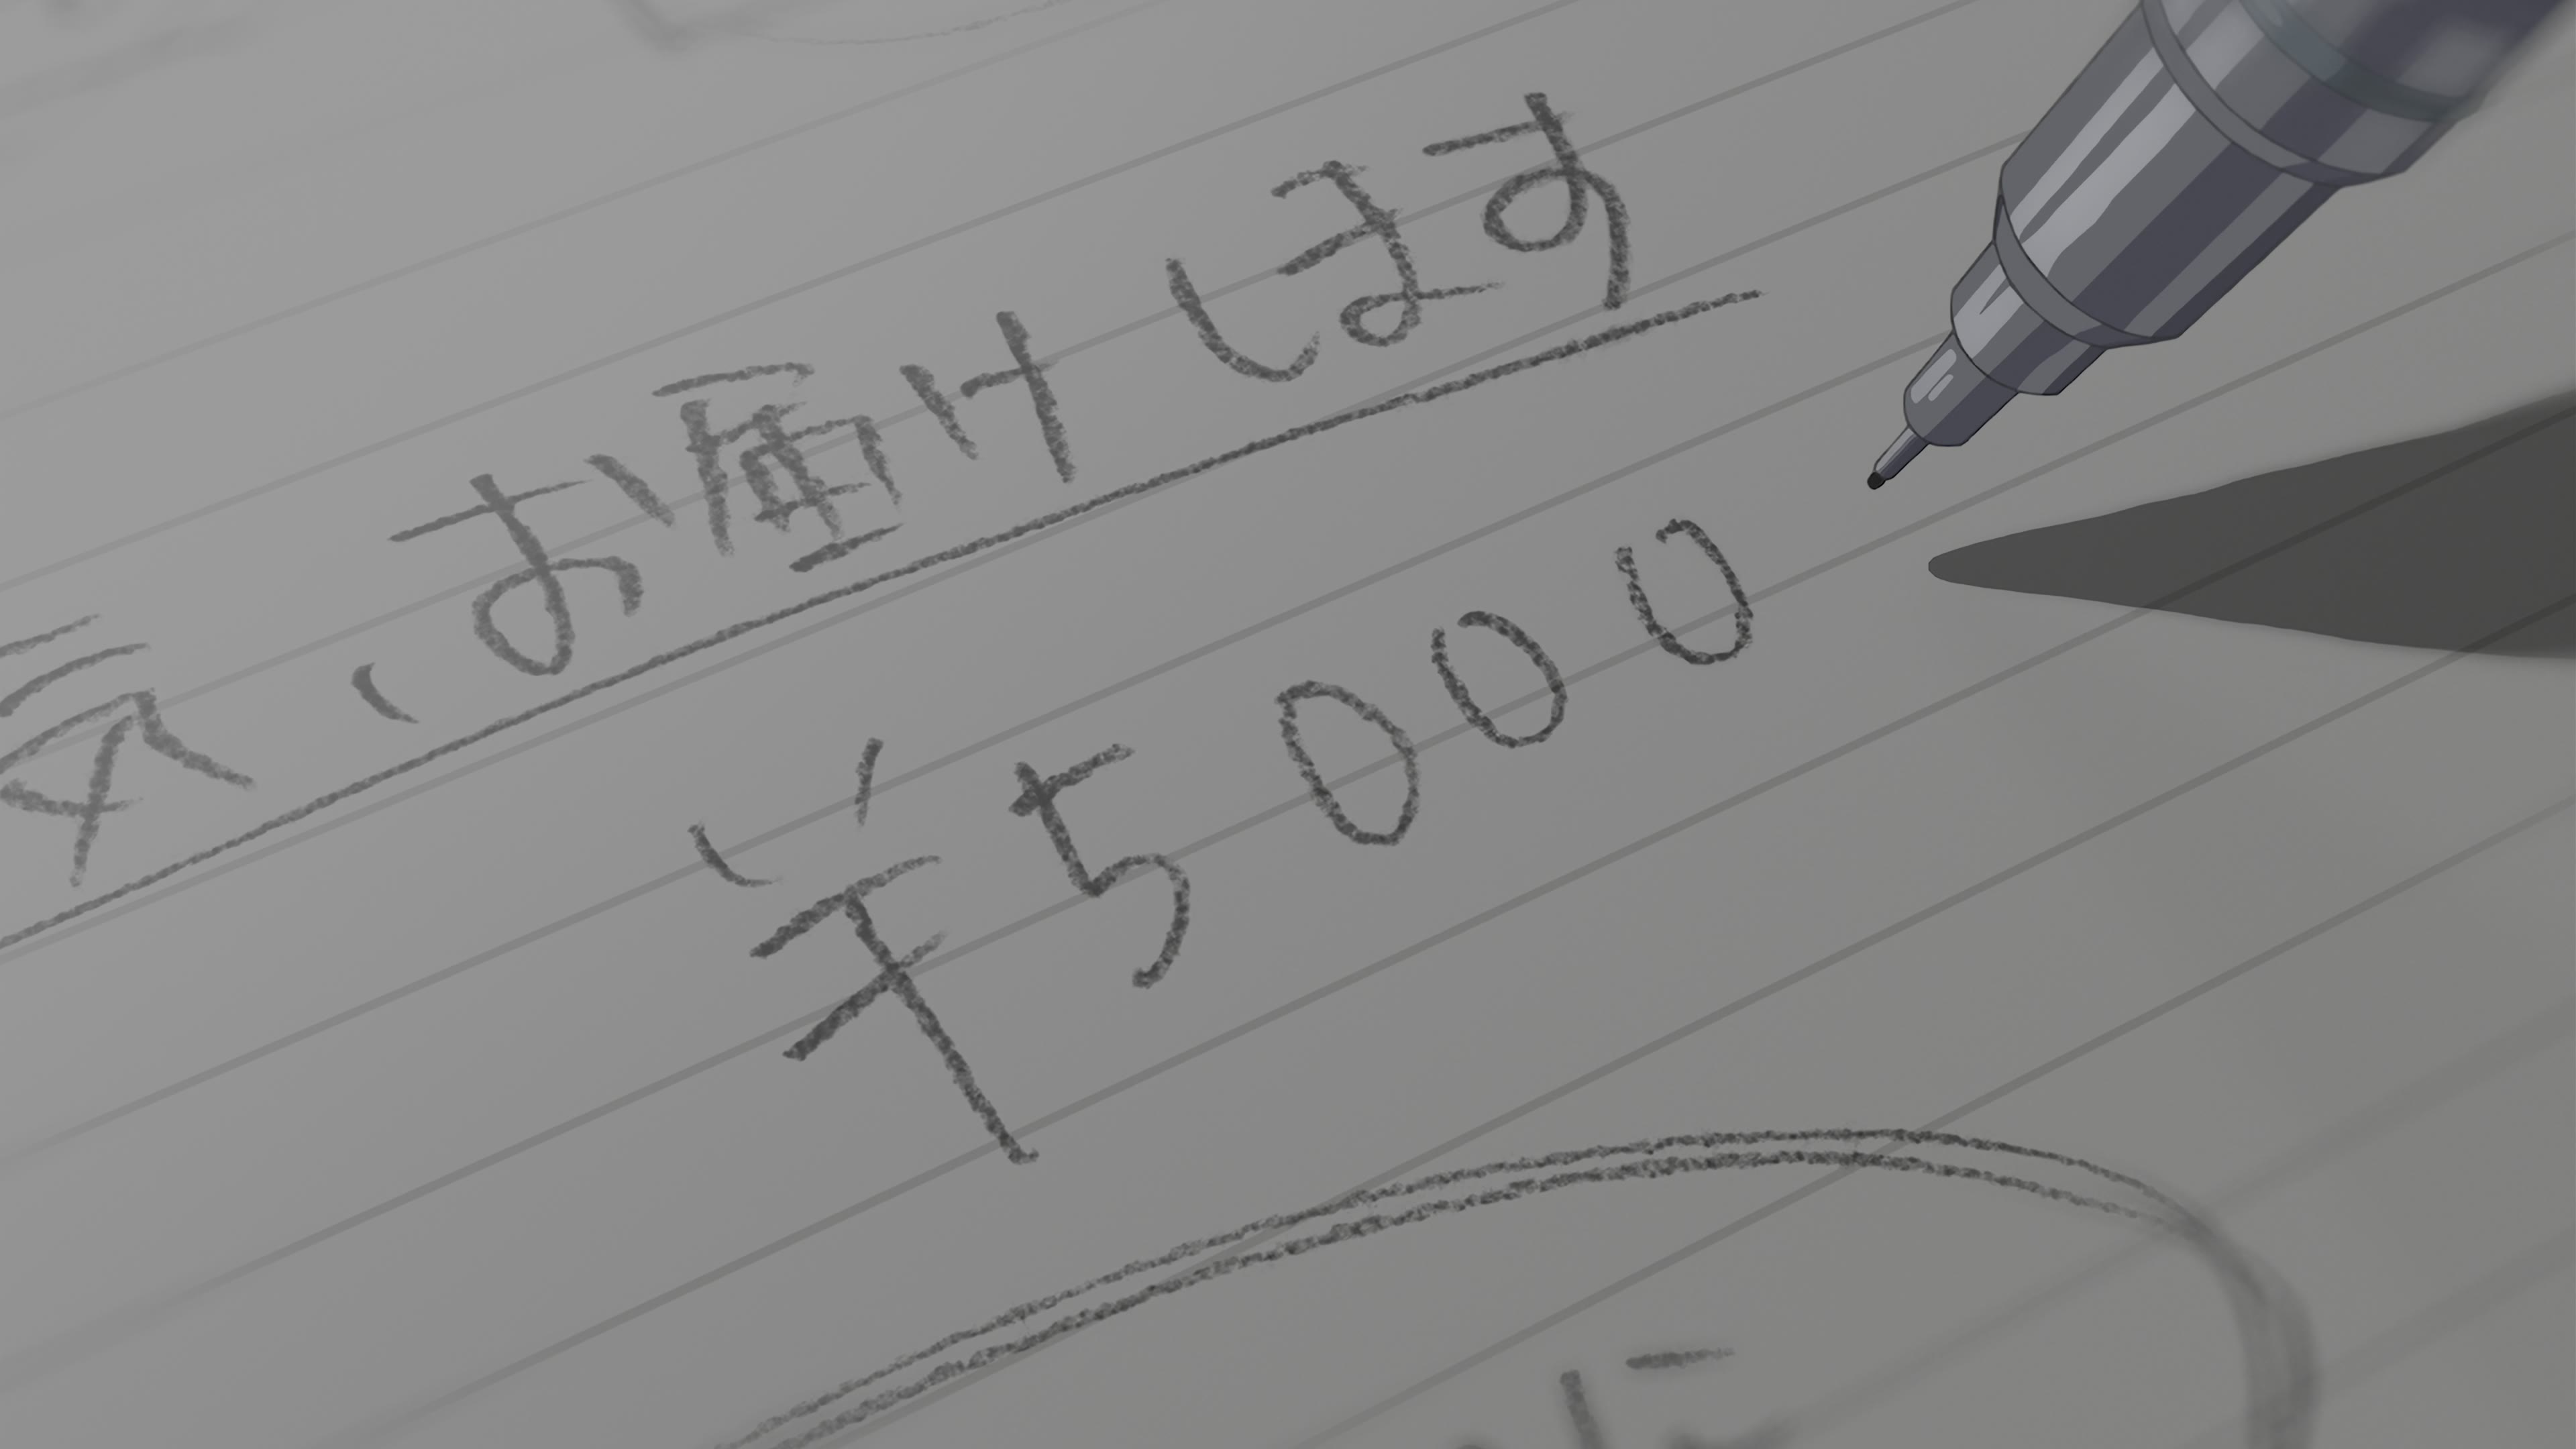 気、お届けします
¥5000